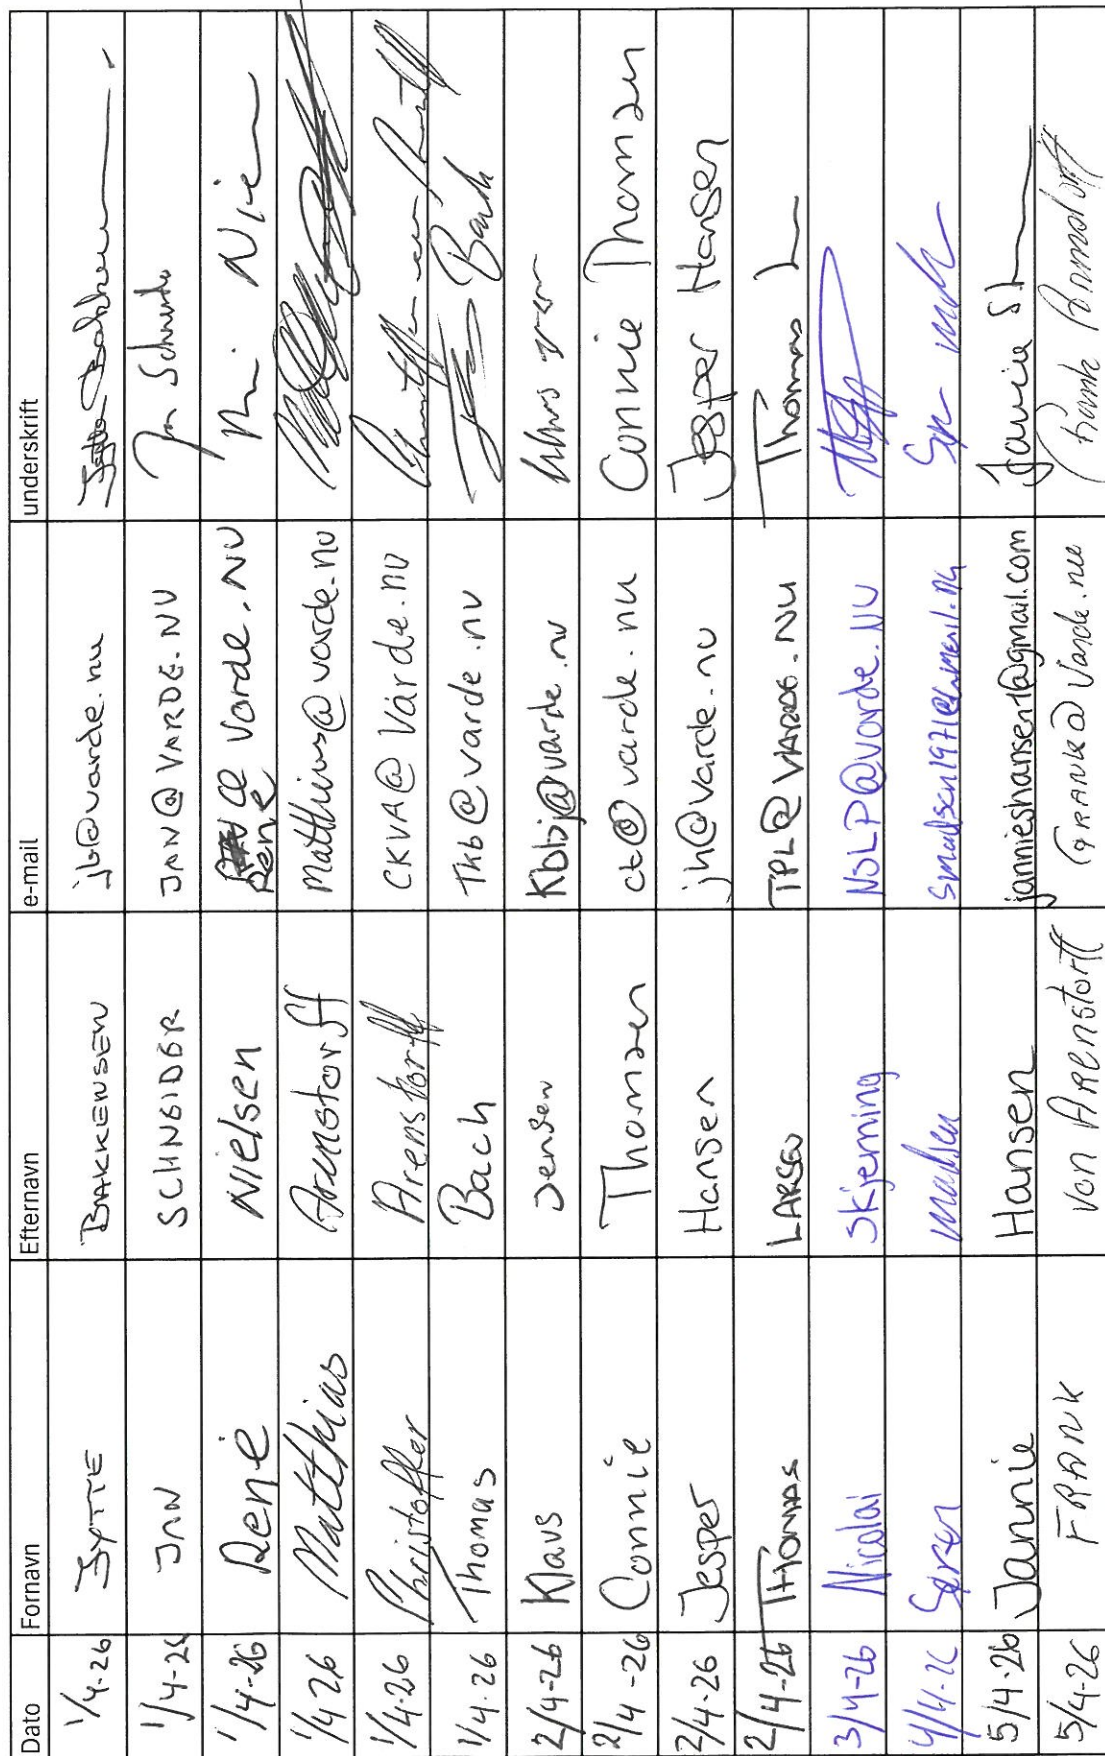 Dato Fornavn Efternavn e-mail underskrift
1/4-26 Jytte BAKKENSEN jb@varde.nu
1/4-26 JAN SCHNEIDER JAN@VARDE.NU Jan Schneider
1/4-26 René Nielsen René@Varde.NU
1/4 26 Matthias Arenstorff Matthias@varde.nu
1/4-26 Christoffer Arenstorff CKVA@Varde.nu
1/4.26 Thomas Bach Tkb@varde.nu Bach
2/4-26 Klaus Jensen Kbbj@varde.nu
2/4-26 Connie Thomsen ct@varde.nu Connie Thomsen
2/4-26 Jesper Hansen jh@varde.nu Jesper Hansen
2/4-26 THOMAS LARSEN TPL@VARDE.NU Thomas L
3/4-26 Nicolai Skjerning NSLP@varde.NU
4/4-26 Søren Madsen
5/4-26 Jannie Hansen jannieshansen1@gmail.com
5/4-26 FRANK Von ARENSTORFF FRANK@Varde.nu